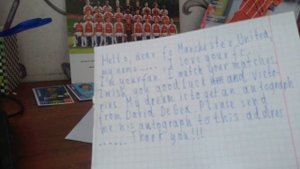 Hello, dear Fc Manchester United,
my name ..... I love your fc.
I'm your fan. I watch your matchs.
I wish you good luck and victo-
ries. My dream is to get an autograph
from David DeGea. Please send
me his autograph to this address
...... Thank you!!!